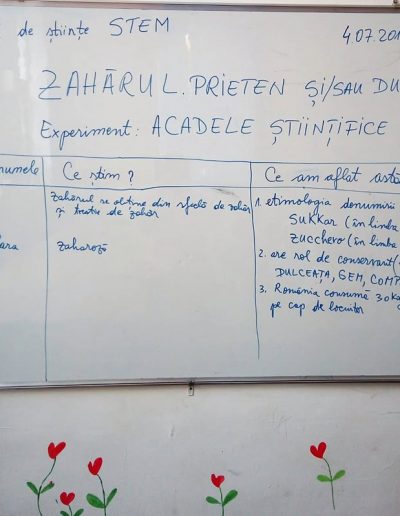 de științe STEM 4.07.201
ZAHĂRUL. PRIETEN ȘI/SAU DU
Experiment: ACADELE ȘTIINȚIFICE
numele Ce știm? Ce am aflat astă
Zahărul se obține din sfeclă de zahăr
și trestie de zahăr
ara zaharoză
1. etimologia denumirii
SUKKAR (în limba
ZUCCHERO (în limba
2. are rol de conservant (
DULCEAȚA, GEM, COMP
3. România consumă 30 K
pe cap de locuitor